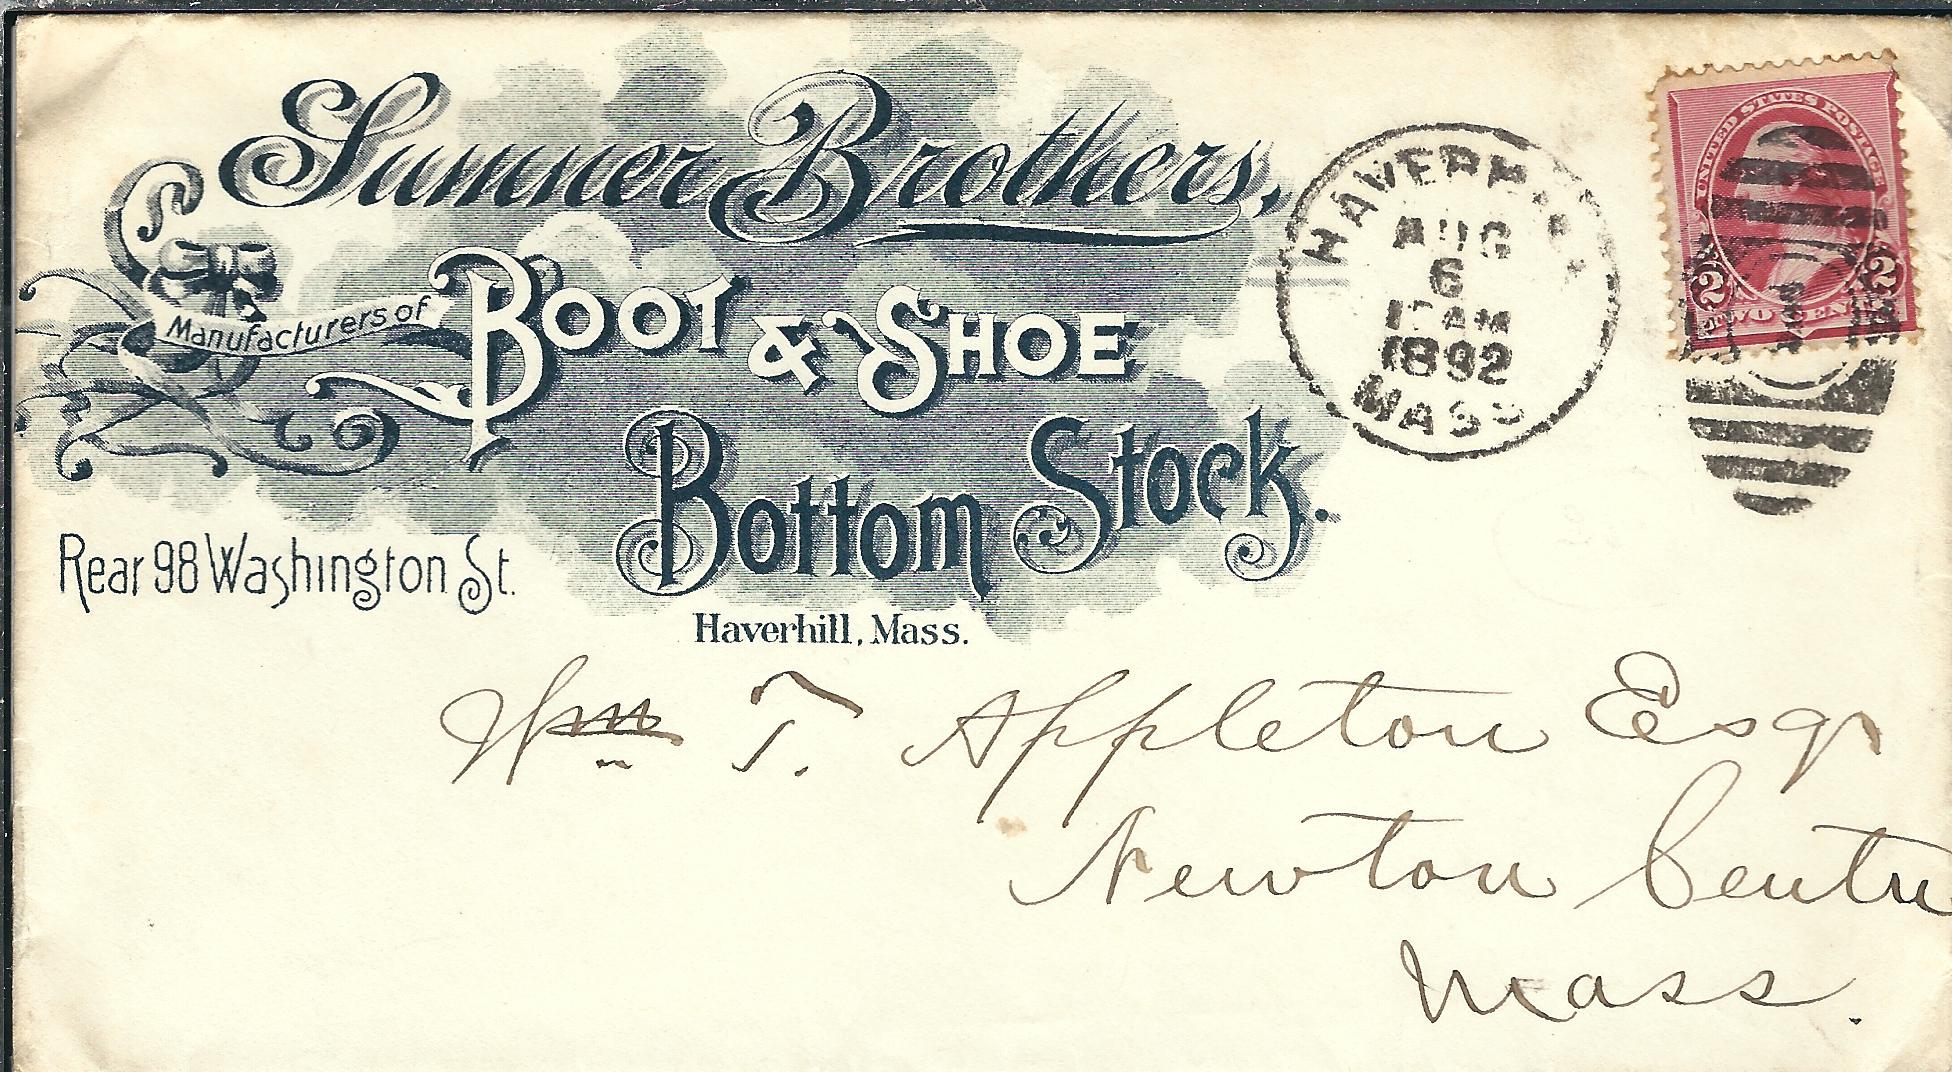 Sumner Brothers,
Manufacturers of
BOOT & SHOE
Bottom Stock.
Rear 98 Washington St.
Haverhill, Mass.
HAVERHILL
AUG
6
AM
1892
MASS
UNITED STATES POSTAGE
2 2
TWO CENTS
Wm T. Appleton Esqr
Newton Centre
Mass.